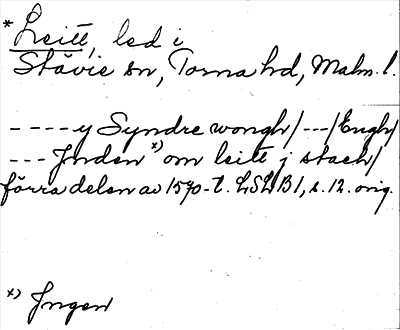 * Leitt, led i
Stävie sn, Torna hd, Malm. l.
----y Syndre wongh/---/Engh/
---Jnden x) om leitt j staeh/
förra delen av 1570-t. LSLB1, s. 12. orig.
x) Jngen